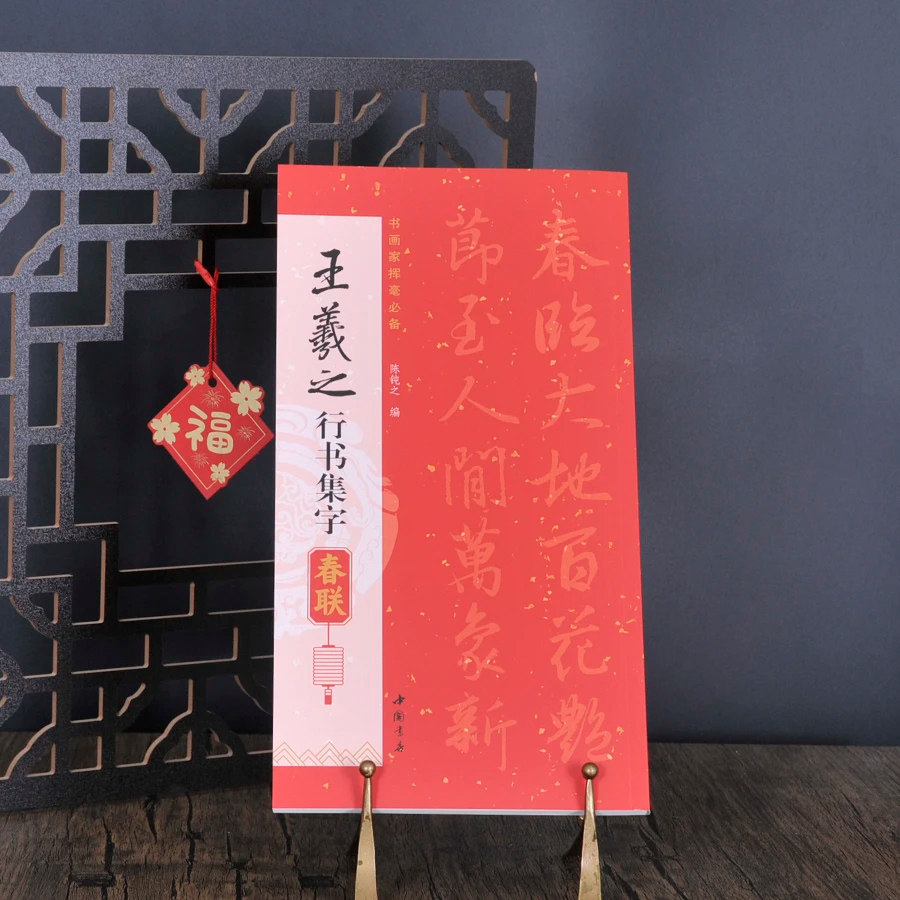 春臨大地百花艷
節至人間萬象新
书画家挥毫必备
陈钝之 编
王羲之
行书集字
春联
中国书店
福